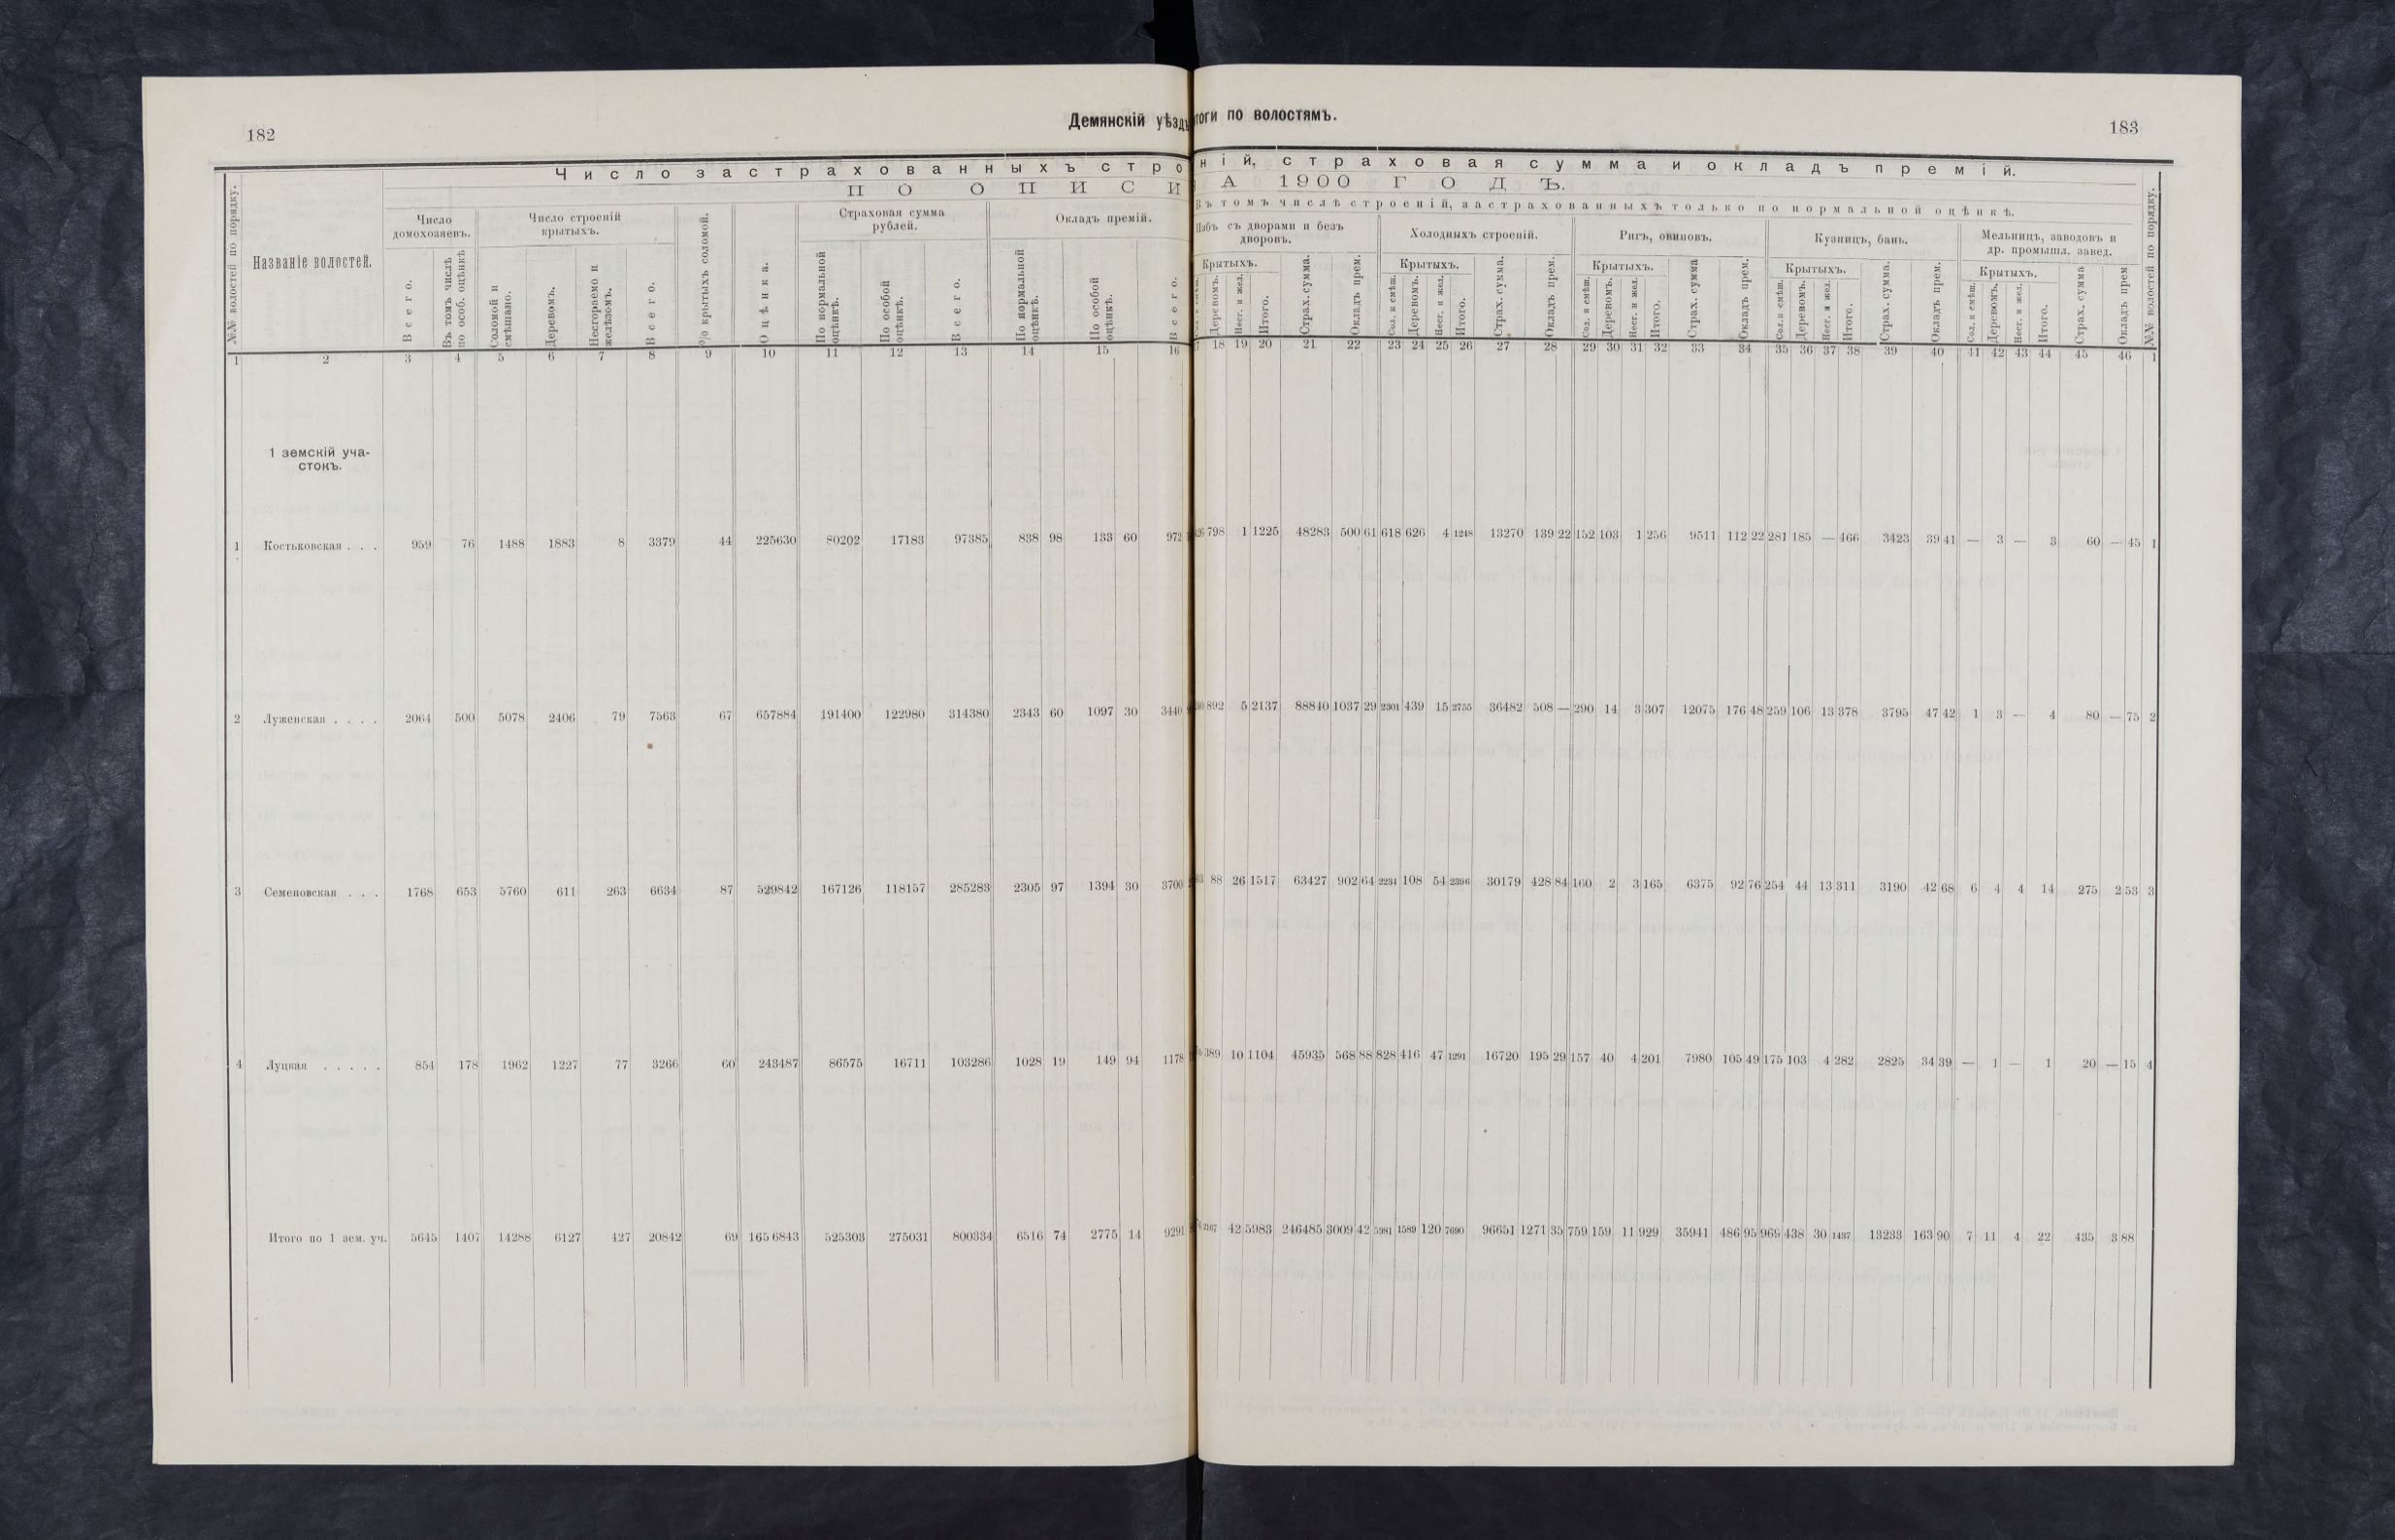 182
Демянскій уѣздъ
Число застрахованныхъ стро
ПО ОПИСИ
№№ волостей по порядку.
Названіе волостей.
Число домохозяевъ.
Всего.
Въ томъ числѣ по особ. оцѣнкѣ
Число строеній крытыхъ.
Соломой и смѣшано.
Деревомъ.
Несгораемо и желѣзомъ.
Всего.
% крытыхъ соломой.
Оцѣнка.
Страховая сумма рублей.
По нормальной оцѣнкѣ.
По особой оцѣнкѣ.
Всего.
Окладъ премій.
По нормальной оцѣнкѣ.
По особой оцѣнкѣ.
Всего.
1 2 3 4 5 6 7 8 9 10 11 12 13 14 15 16
1 земскій уча-
стокъ.
1 Костьковская . . . 959 76 1488 1883 8 3379 44 225630 80202 17183 97385 838 98 133 60 972
2 Луженская . . . . 2064 500 5078 2406 79 7563 67 657884 191400 122980 314380 2343 60 1097 30 3440
3 Семеновская . . . 1768 653 5760 611 263 6634 87 529842 167126 118157 285283 2305 97 1394 30 3700
4 Луцкая . . . . . 854 178 1962 1227 77 3266 60 243487 86575 16711 103286 1028 19 149 94 1178
Итого по 1 зем. уч. 5645 1407 14288 6127 427 20842 69 165 6843 525303 275031 800334 6516 74 2775 14 9291
тоги по волостямъ.
183
ній, страховая сумма и окладъ премій.
А 1900 ГОДЪ.
Въ томъ числѣ строеній, застрахованныхъ только по нормальной оцѣнкѣ.
Избъ съ дворами и безъ дворовъ.
Крытыхъ.
Деревомъ.
Несг. и жел.
Итого.
Страх. сумма.
Окладъ прем.
Холодныхъ строеній.
Крытыхъ.
Сол. и смѣш.
Деревомъ.
Несг. и жел.
Итого.
Страх. сумма.
Окладъ прем.
Ригъ, овиновъ.
Крытыхъ.
Сол. и смѣш.
Деревомъ.
Несг. и жел.
Итого.
Страх. сумма
Окладъ прем.
Кузницъ, бань.
Крытыхъ.
Сол. и смѣш.
Деревомъ.
Несг. и жел.
Итого.
Страх. сумма.
Окладъ прем.
Мельницъ, заводовъ и др. промышл. завед.
Крытыхъ.
Сол. и смѣш.
Деревомъ.
Несг. и жел.
Итого.
Страх. сумма
Окладъ прем
№№ волостей по порядку.
18 19 20 21 22 23 24 25 26 27 28 29 30 31 32 33 34 35 36 37 38 39 40 41 42 43 44 45 46 1
798 1 1225 48283 500 61 618 626 4 1248 13270 139 22 152 103 1 256 9511 112 22 281 185 — 466 3423 39 41 — 3 — 3 60 — 45 1
892 5 2137 88840 1037 29 2301 439 15 2755 36482 508 — 290 14 3 307 12075 176 48 259 106 13 378 3795 47 42 1 3 — 4 80 — 75 2
88 26 1517 63427 902 64 2234 108 54 2396 30179 428 84 160 2 3 165 6375 92 76 254 44 13 311 3190 42 68 6 4 4 14 275 2 53 3
389 10 1104 45935 568 88 828 416 47 1291 16720 195 29 157 40 4 201 7980 105 49 175 103 4 282 2825 34 39 — 1 — 1 20 — 15 4
2167 42 5983 246485 3009 42 5981 1589 120 7690 96651 1271 35 759 159 11 929 35941 486 95 969 438 30 1437 13233 163 90 7 11 4 22 435 3 88